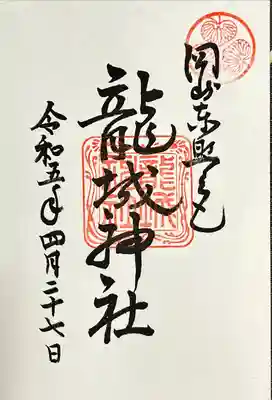 岡崎東照宮
龍城神社
令和五年四月二十七日